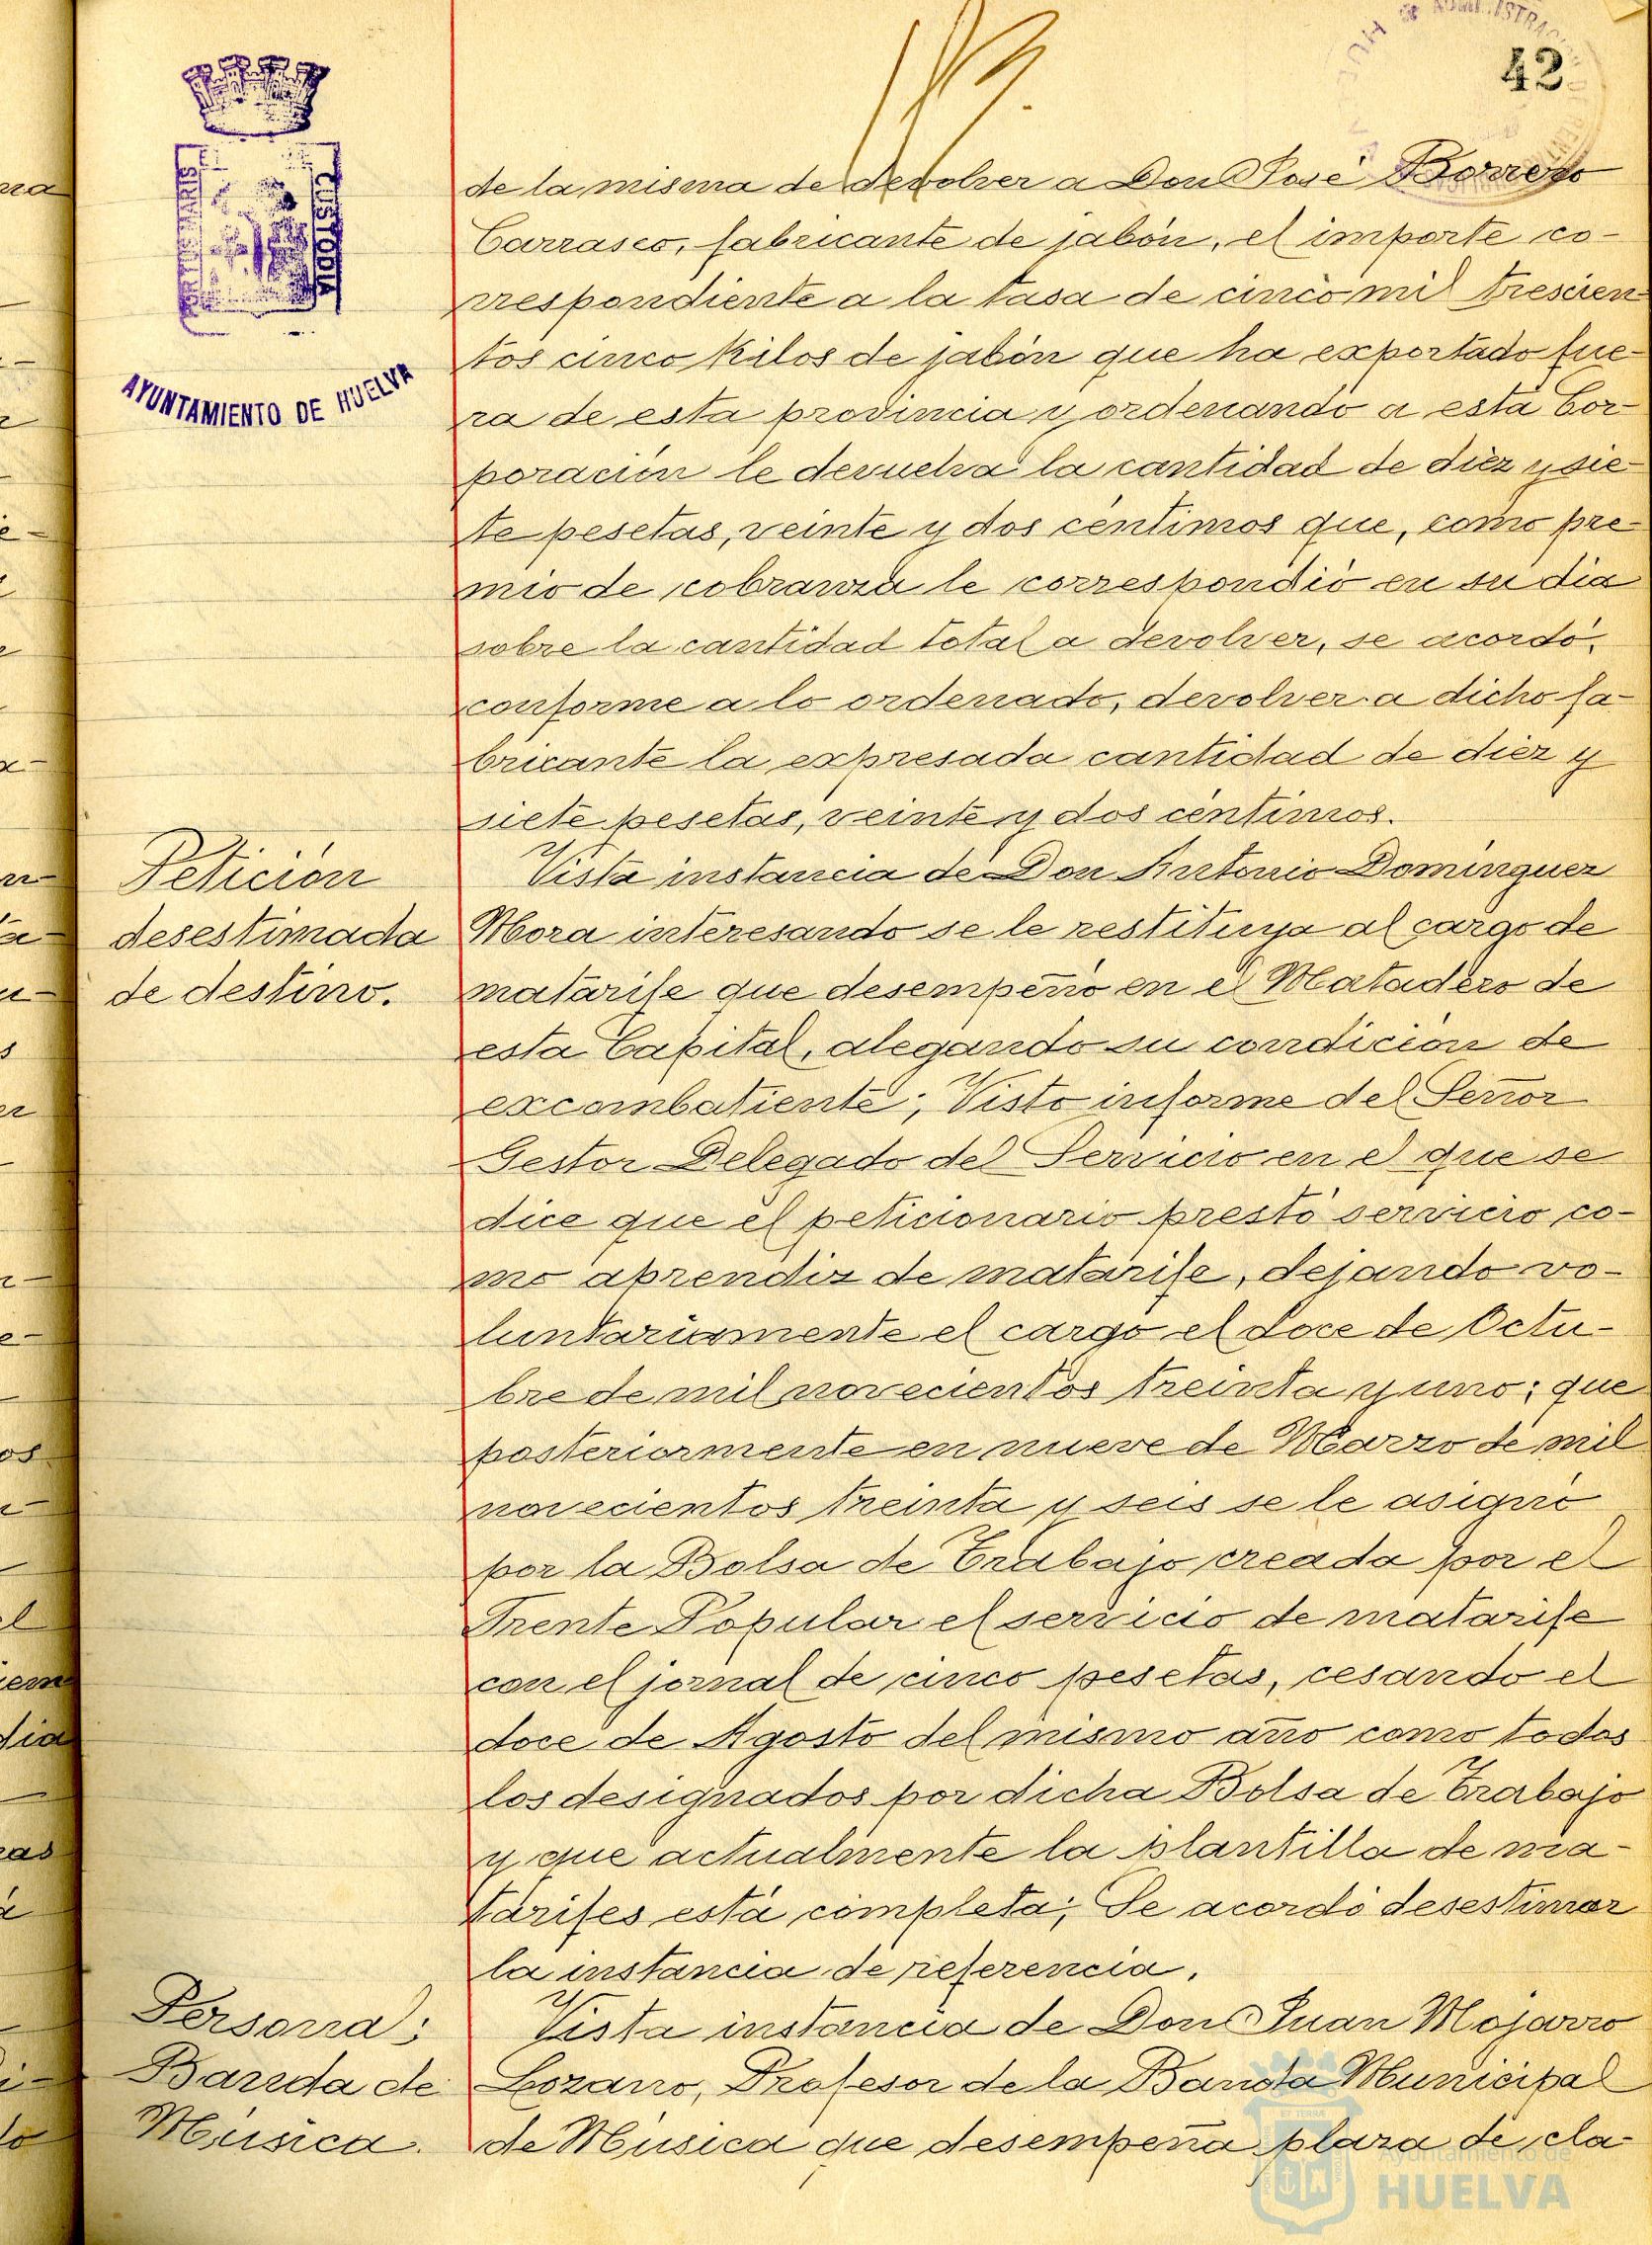 42
PORTUS MARIS
CUSTODIA
AYUNTAMIENTO DE HUELVA
de la misma de devolver a Don José Borrero
Carrasco, fabricante de jabón, el importe co-
rrespondiente a la tasa de cinco mil trescien-
tos cinco Kilos de jabón que ha exportado fue-
ra de esta provincia y ordenando a esta Cor-
poración le devuelva la cantidad de diez y sie-
te pesetas, veinte y dos céntimos que, como pre-
mio de cobranza le correspondió en su dia
sobre la cantidad total a devolver, se acordó,
conforme a lo ordenado, devolver a dicho fa-
bricante la expresada cantidad de diez y
siete pesetas, veinte y dos céntimos.
Petición
desestimada
de destino.
Vista instancia de Don Antonio Dominguez
Mora interesando se le restituya al cargo de
matarife que desempeñó en el Matadero de
esta Capital, alegando su condición de
excombatiente; Visto informe del Señor
Gestor Delegado del Servicio en el que se
dice que el peticionario prestó servicio co-
mo aprendiz de matarife, dejando vo-
luntariamente el cargo el doce de Octu-
bre de mil novecientos treinta y uno; que
posteriormente en nueve de Marzo de mil
novecientos treinta y seis se le asignó
por la Bolsa de Trabajo creada por el
Frente Popular el servicio de matarife
con el jornal de cinco pesetas, cesando el
doce de Agosto del mismo año como todos
los designados por dicha Bolsa de Trabajo
y que actualmente la plantilla de ma-
tarifes está completa; Se acordó desestimar
la instancia de referencia.
Personal;
Banda de
Música.
Vista instancia de Don Juan Mojarro
Lozano, Profesor de la Banda Municipal
de Música que desempeña plaza de cla-
Ayuntamiento de
HUELVA